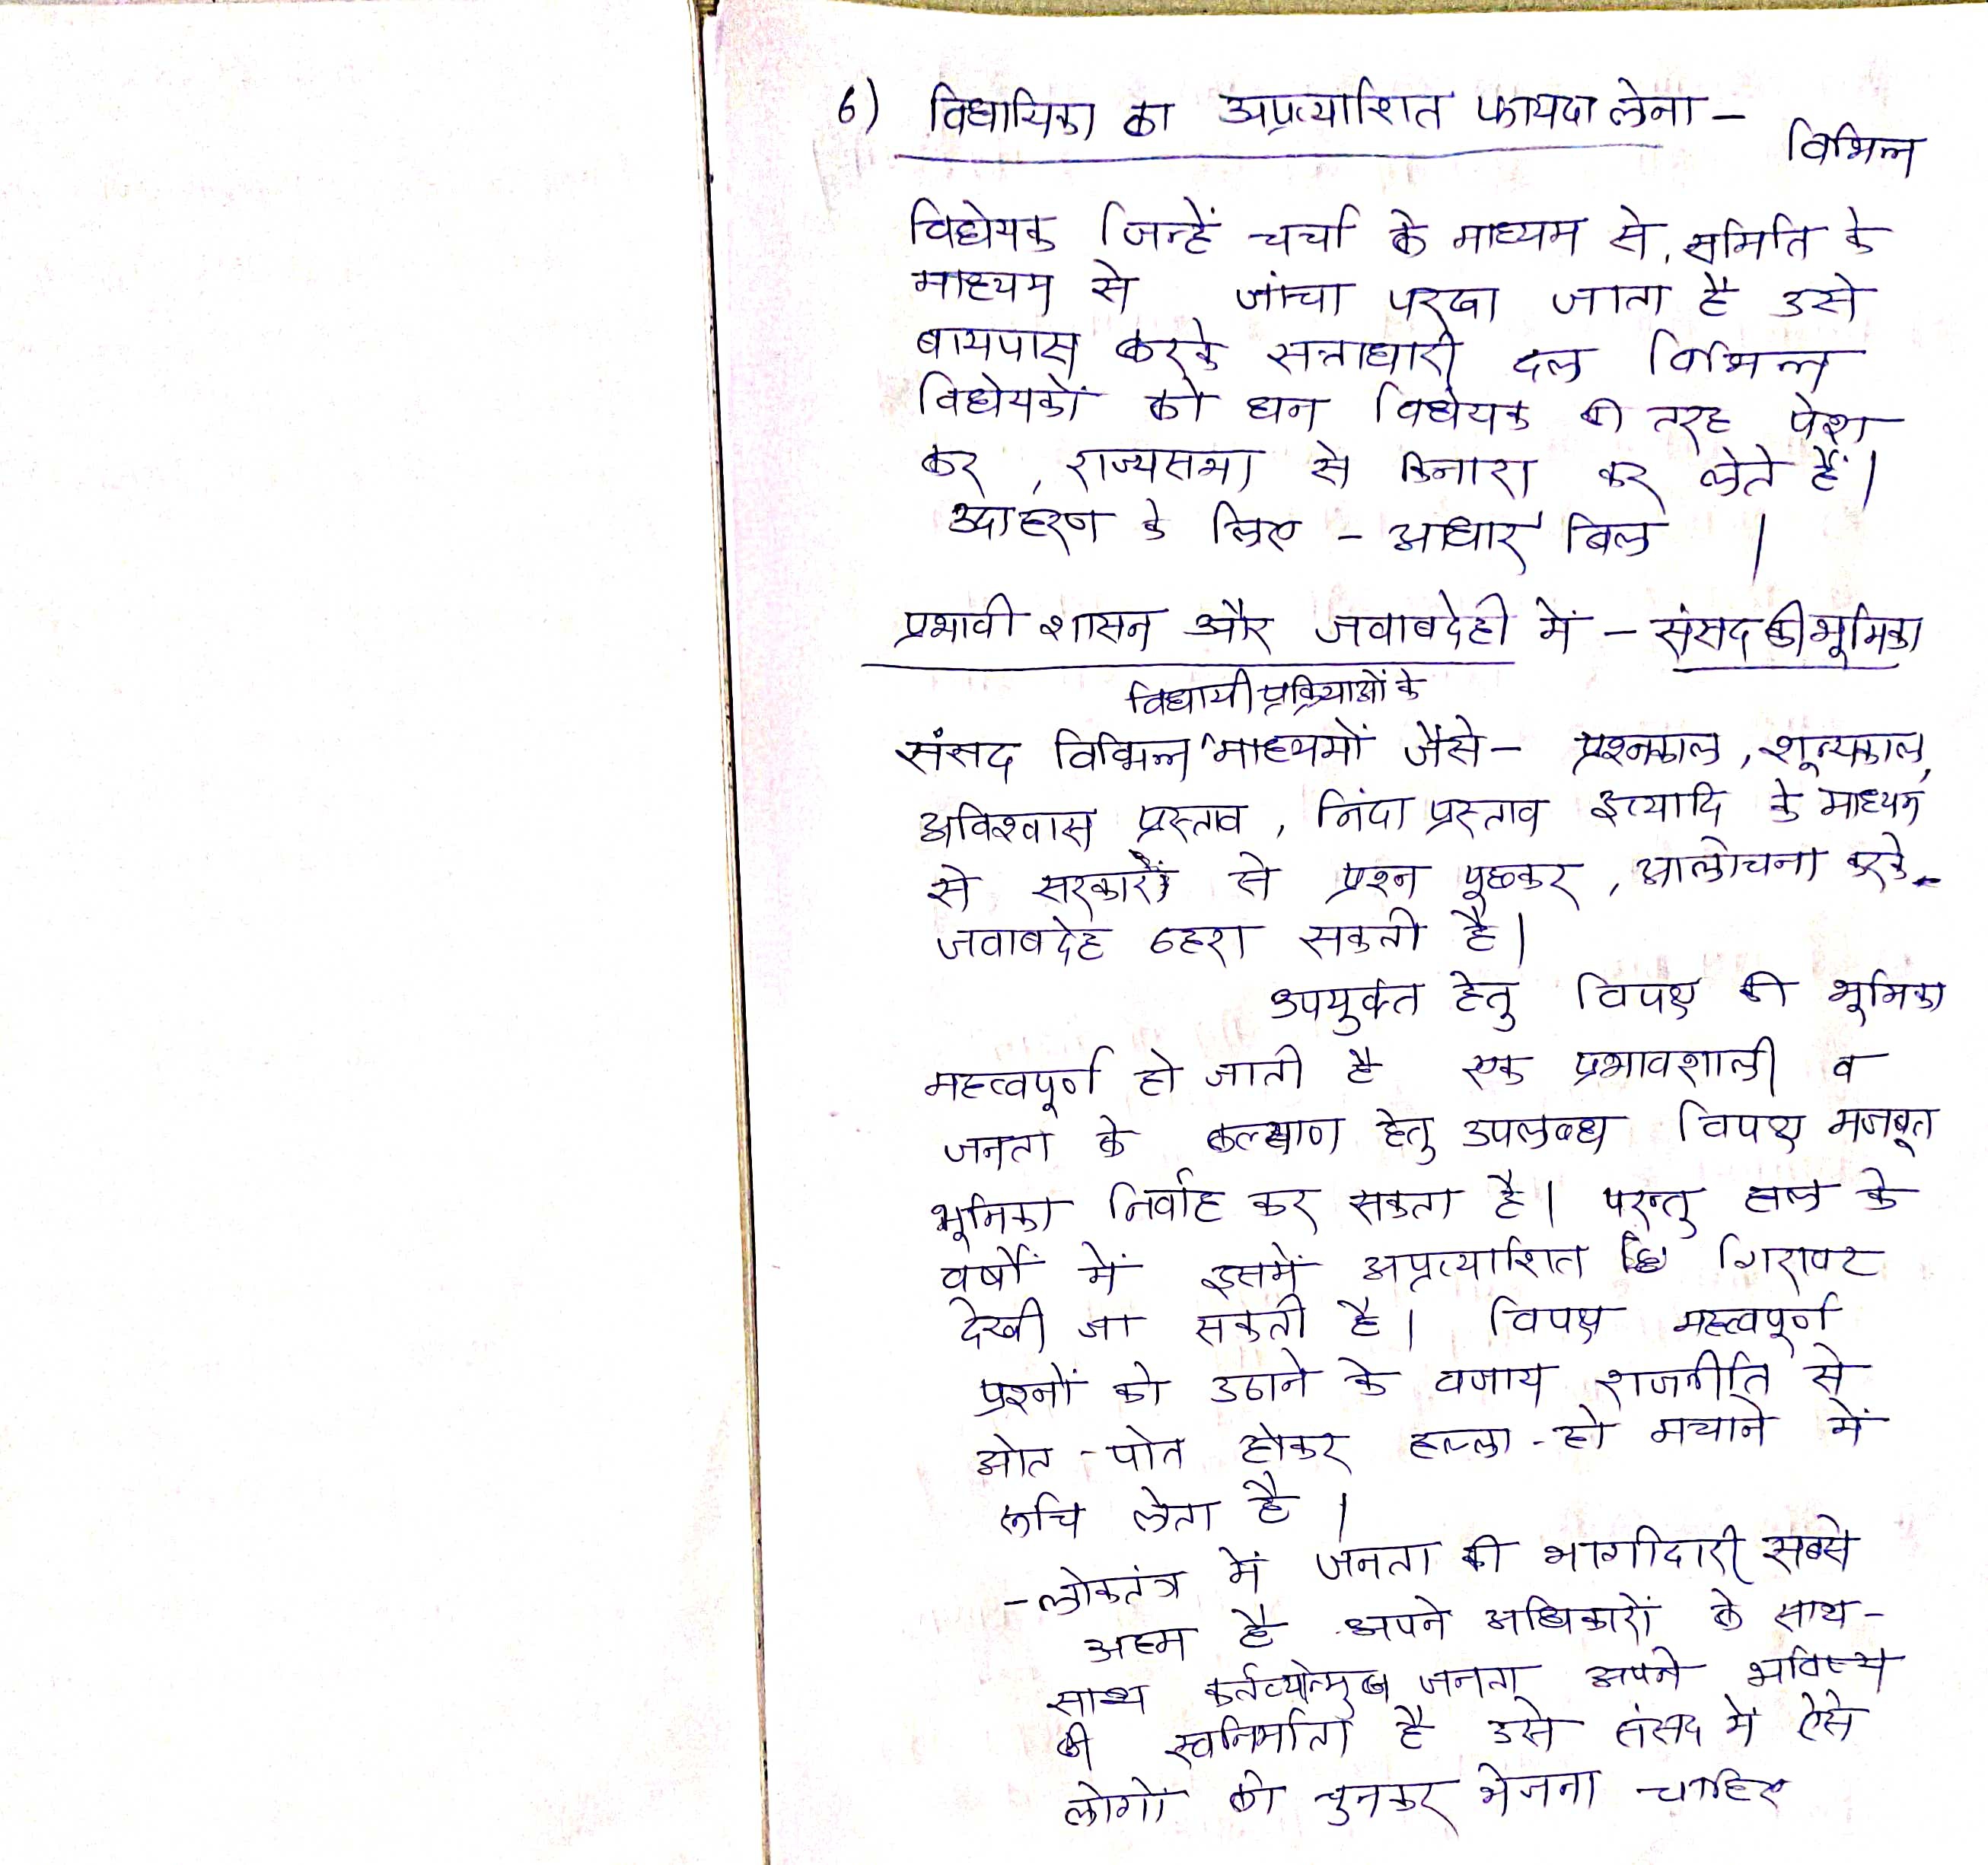 6) विधायिका का अप्रत्याशित फायदा लेना –
विभिन्न
विधेयक जिन्हें चर्चा के माध्यम से, समिति के
माध्यम से जांचा परखा जाता है उसे
बायपास करके सत्ताधारी दल विभिन्न
विधेयकों को धन विधेयक की तरह पेश
कर, राज्यसभा से किनारा कर लेते हैं।
उदाहरण के लिए – आधार बिल ।
प्रभावी शासन और जवाबदेही में – संसद की भूमिका
विधायी प्रक्रियाओं के
संसद विभिन्न ^माध्यमों जैसे – प्रश्नकाल, शून्यकाल,
अविश्वास प्रस्ताव, निंदा प्रस्ताव इत्यादि के माध्यम
से सरकारों से प्रश्न पूछकर, आलोचना करके
जवाबदेह ठहरा सकती है।
उपयुक्त हेतु विपक्ष की भूमिका
महत्वपूर्ण हो जाती है एक प्रभावशाली व
जनता के कल्याण हेतु उपलब्ध विपक्ष मजबूत
भूमिका निर्वाह कर सकता है। परन्तु हाल के
वर्षों में इसमें अप्रत्याशित गिरावट
देखी जा सकती है। विपक्ष महत्वपूर्ण
प्रश्नों को उठाने के वजाय राजनीति से
ओत - पोत होकर हल्ला - हो मचाने में
रूचि लेता है ।
– लोकतंत्र में जनता की भागीदारी सबसे
अहम है अपने अधिकारों के साथ -
साथ कर्तव्योन्मुख जनता अपने भविष्य
की स्वनिर्माता है उसे संसद में ऐसे
लोगों को चुनकर भेजना चाहिए